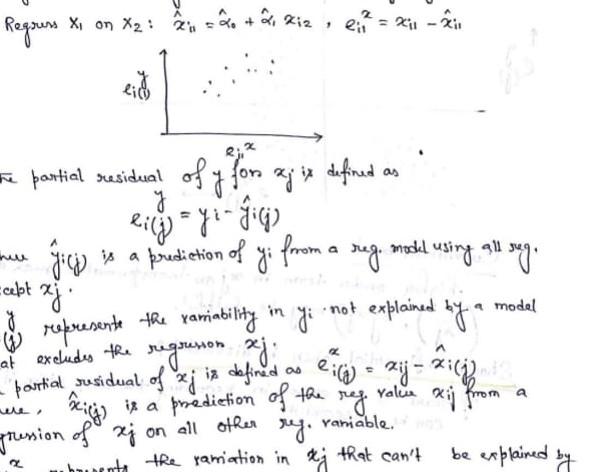 Regress X₁ on X₂ : x̂ᵢ₁ = α̂₀ + α̂₁ xᵢ₂ , eᵢ₁ˣ = xᵢ₁ - x̂ᵢ₁
eᵢ₍₁₎ʸ
partial residual of y for xⱼ is defined as
eᵢ₍ⱼ₎ʸ = yᵢ - ŷᵢ₍ⱼ₎
ŷᵢ₍ⱼ₎ is a prediction of yᵢ from a reg. model using all reg.
cept xⱼ.
represents the variability in yᵢ not explained by a model
at excludes the regressor xⱼ.
partial residual of xⱼ is defined as eᵢ₍ⱼ₎ˣ = xᵢⱼ - x̂ᵢ₍ⱼ₎
ere, x̂ᵢ₍ⱼ₎ is a prediction of the reg. value xᵢⱼ from a
gression of xⱼ on all other reg. variable.
represents the variation in xⱼ that can't be explained by